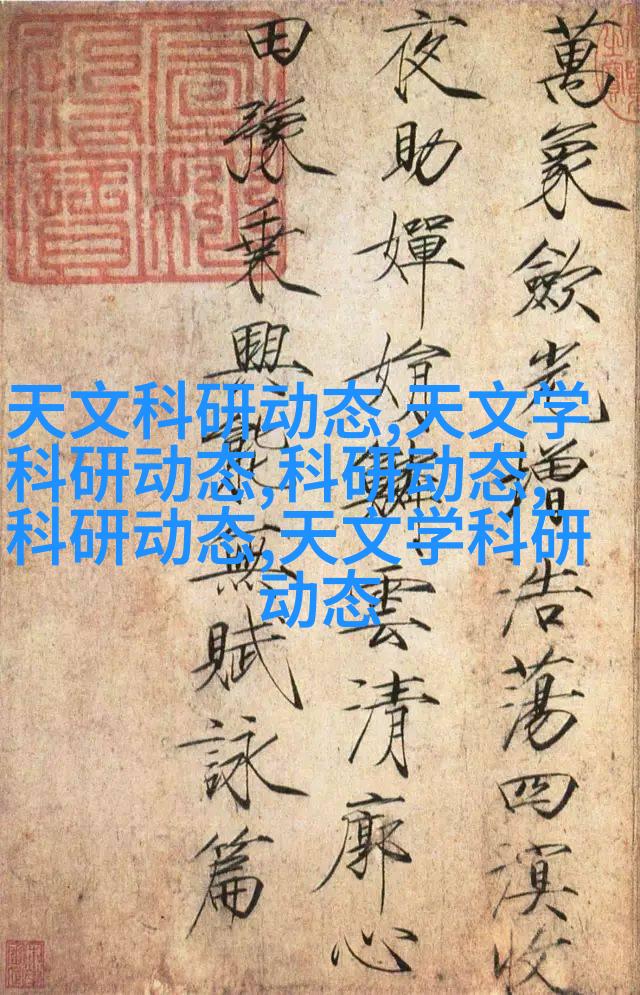 萬象歛光增浩蕩四溟收
夜助嬋娟鱗雲清廓心
田豫乘興能無賦詠篇
天文科研动态,天文学
科研动态,科研动态,
科研动态,天文学科研
动态